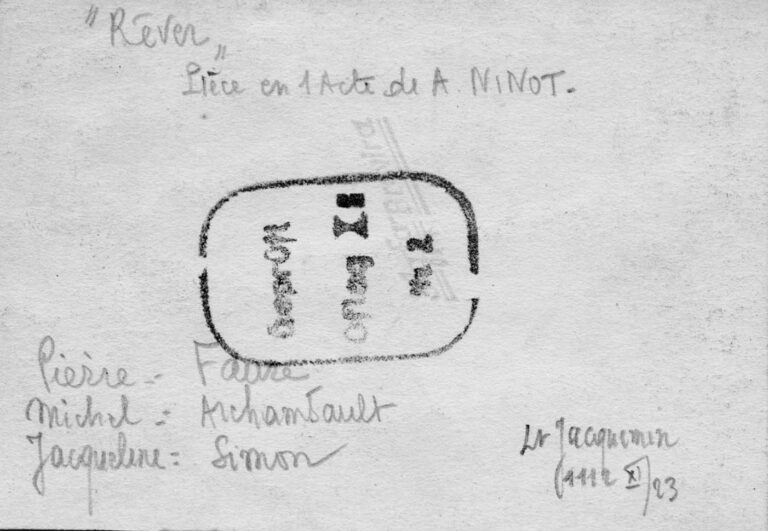 "Rêver"
Pièce en 1 Acte de A. NINOT.
Geprüft
Oflag X
Nr 2
Pierre = Faure
Michel = Archambault
Jacqueline = Simon
Lt Jacquemin
(1112 XI) 23